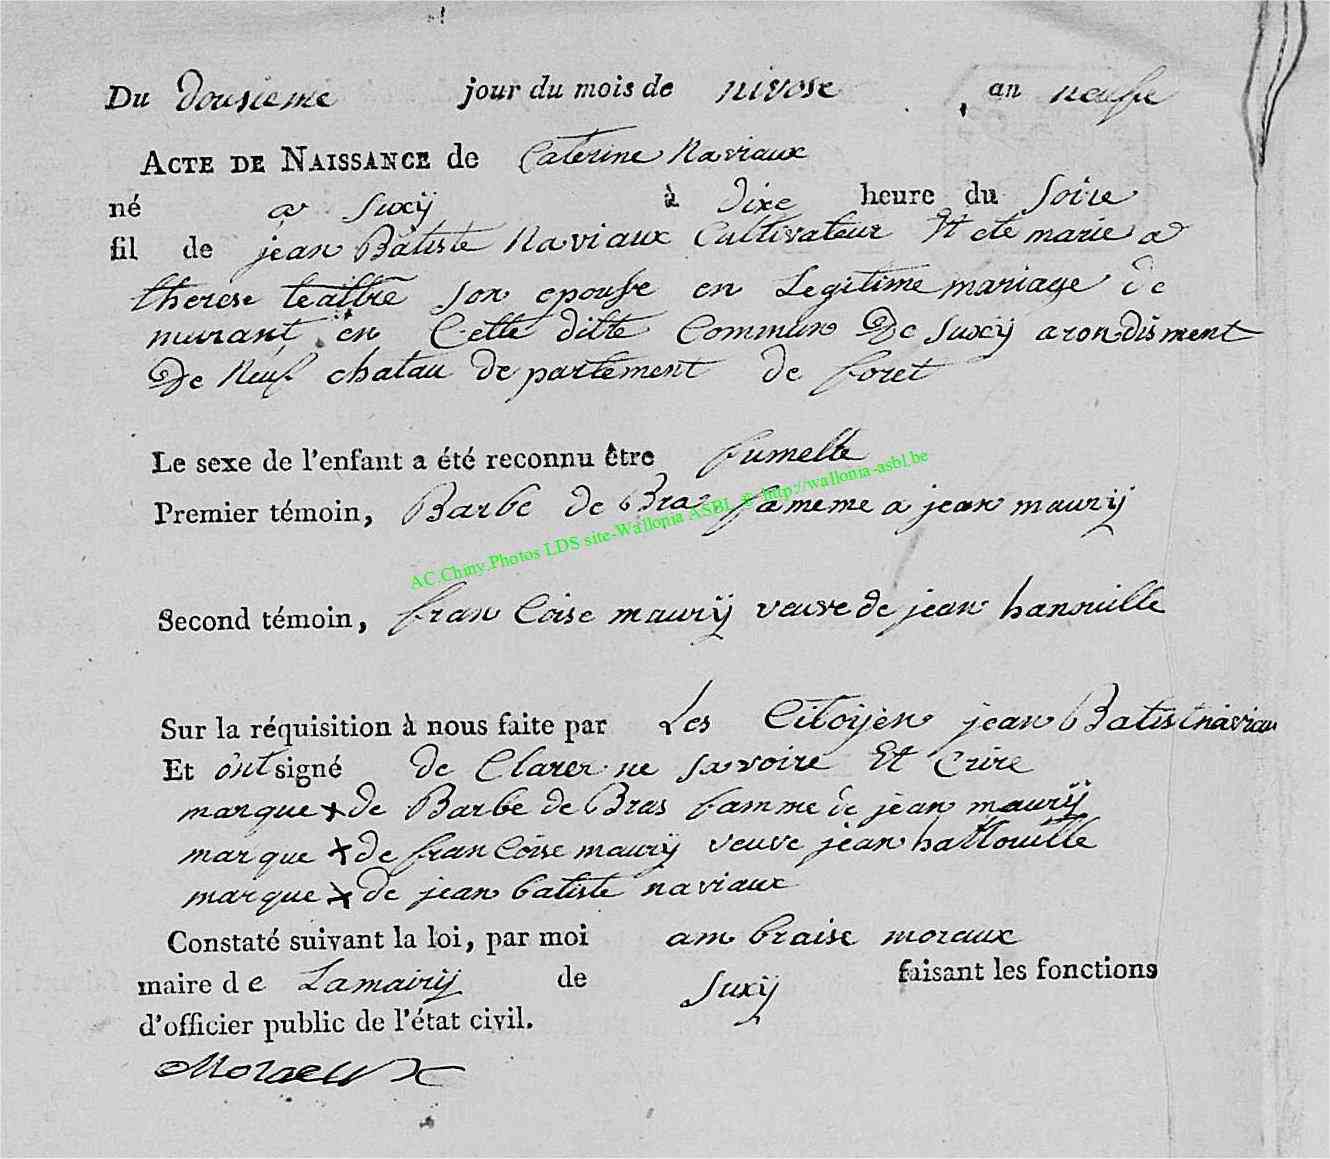 Du dousieme jour du mois de nivose an neuffe
ACTE DE NAISSANCE de Caterine Naviaux
né a Suxÿ à dixe heure du Soire
fil de jean Batiste Naviaux Cultivateur Et ete marie a
therese son epousse en Legitime mariage de
murant en Cette ditte Commun De Suxÿ arondisment
De Neuf chatau de partement de foret
Le sexe de l'enfant a été reconnu être fumelle
Premier témoin, Barbe de Bra fameme a jean maurÿ
AC.Chiny.Photos LDS site-Wallonia ASBL © http://wallonia-asbl.be
Second témoin, fran Coise maurÿ veuve de jean hanouille
Sur la réquisition à nous faite par Les Citoijen jean Batist naviau
Et ont signé de Clarer ne Savoire Et Crire
marque + de Barbe de Bras famme de jean maurÿ
marque + de fran Coise maurÿ veuve jean hallouille
marque + de jean batiste naviaux
Constaté suivant la loi, par moi am braise moraux
maire de Lamairij de Suxÿ faisant les fonctions
d'officier public de l'état civil.
Moraeux